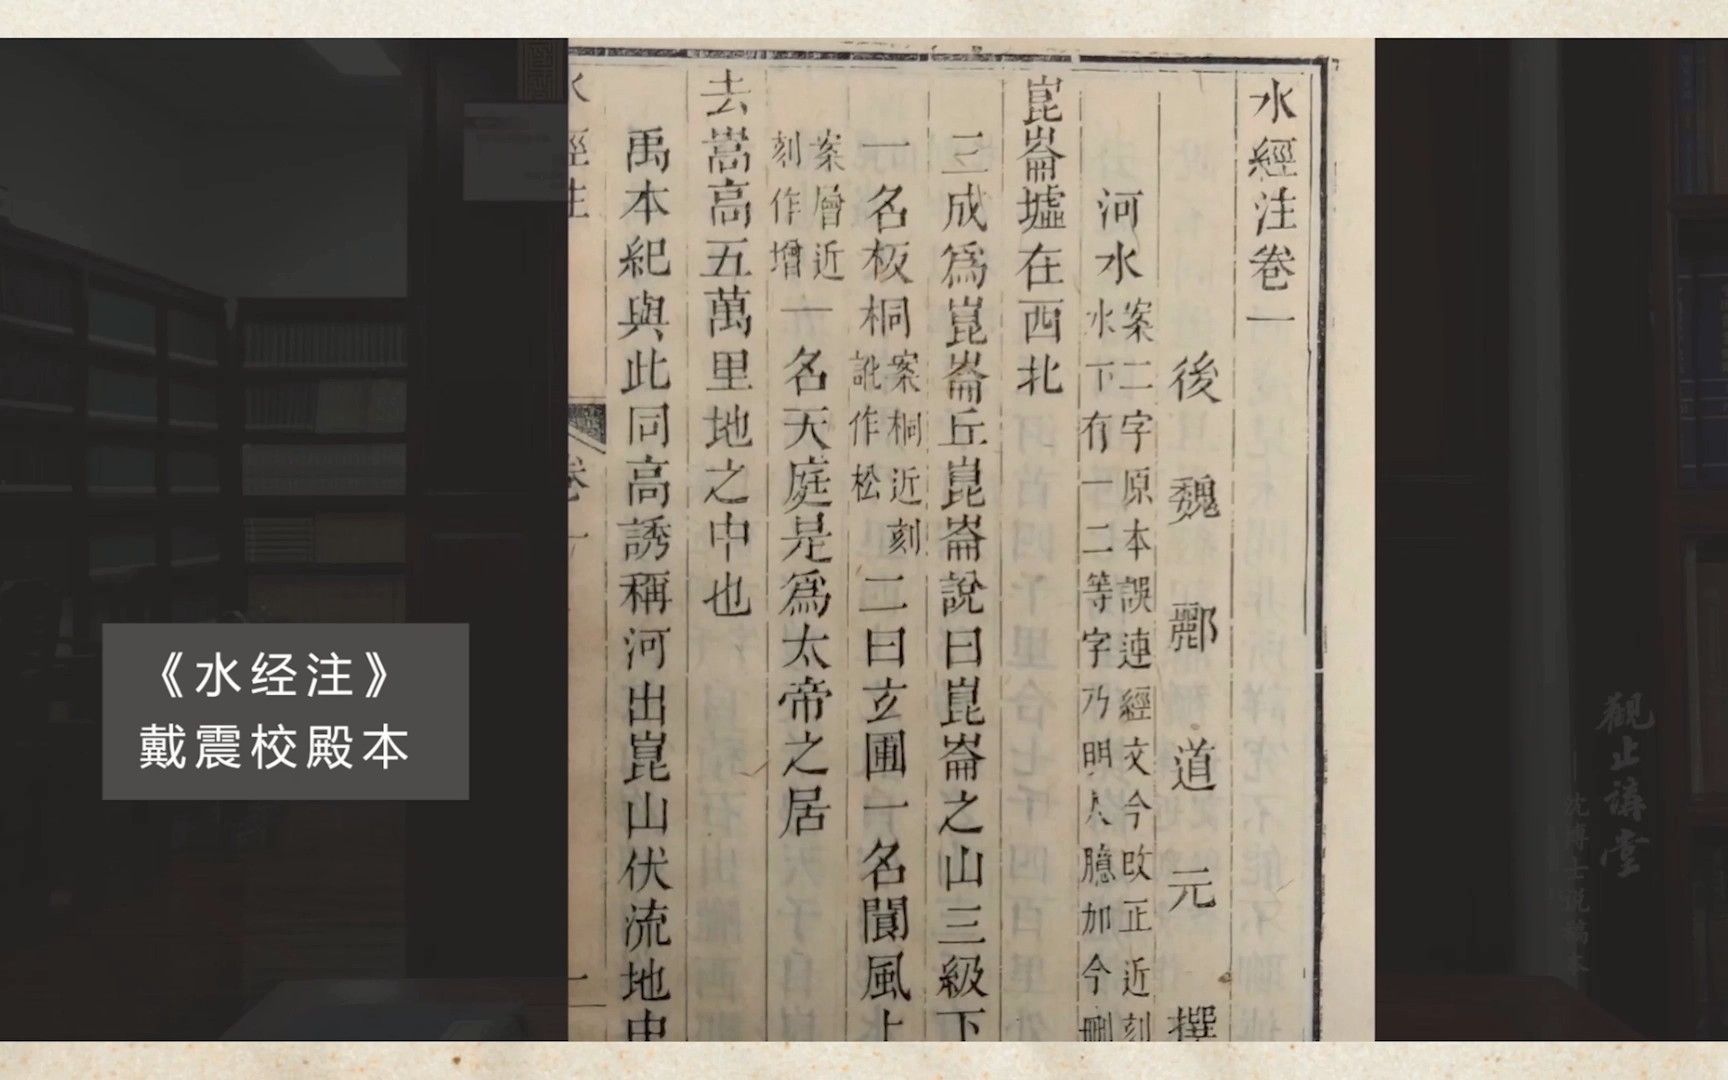 水經注卷一
後魏酈道元撰
河水案二字原本誤連經文今改正近刻
水下有一二等字乃明人臆加今刪
崑崙墟在西北
三成爲崑崙丘崑崙說曰崑崙之山三級下
一名板桐案桐近刻
訛作松二曰玄圃一名閬風上
案層近
刻作增一名天庭是爲太帝之居
去嵩高五萬里地之中也
禹本紀與此同高誘稱河出崑山伏流地中
水經注
卷一
一
《水经注》
戴震校殿本
觀止講堂
沈博士说稿本